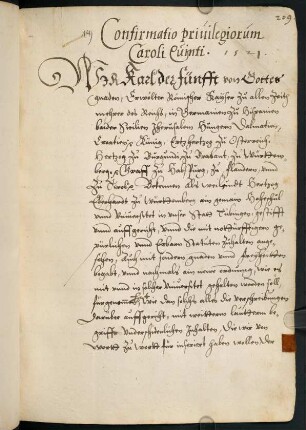 209
Confirmatio priuilegiorum
Caroli Quinti. 1521.
Wir Karl der fünfft von Gottes
gnaden, Erwölter Römischer Kayser zu allen Zeiten
mehrer des Reichs, in Germanien zu Hispanien
baider Sicilien Jherusalem Hungern Dalmatien,
Croatien &c. König, Ertzhertzog zu Osterreich,
Hertzog zu Burgundi, zu Brabant, zu Württem
berg, &c. Graff zu Habspurg, zu Flandern, vnd
zu Tirol &c. Bekennen als weylundt Hertzog
Eberhardt zu Württemberg ain gemain Hohschul
vnd Vniuersitet in vnser Statt Tübingen, gestifft
vnd auffgericht, vnd die mit nottürfftigen ge
pürlichen vnd Erbarn Statuten zuhalten ange
sehen, auch mit sondern gnaden vnd freyhaiten
begabt, vnd nachmals ain newe ordnung, wie es
mit vnd in solcher Vniuersitet gehalten werden soll,
fürgenomen, wie dan solchs alles die verschreibungen
darüber auffgericht, mit weitterm lautterm be
griff vnderschidenlichen Inhalten, die wir von
wortt zu wortt für inseriert haben wöllen, der